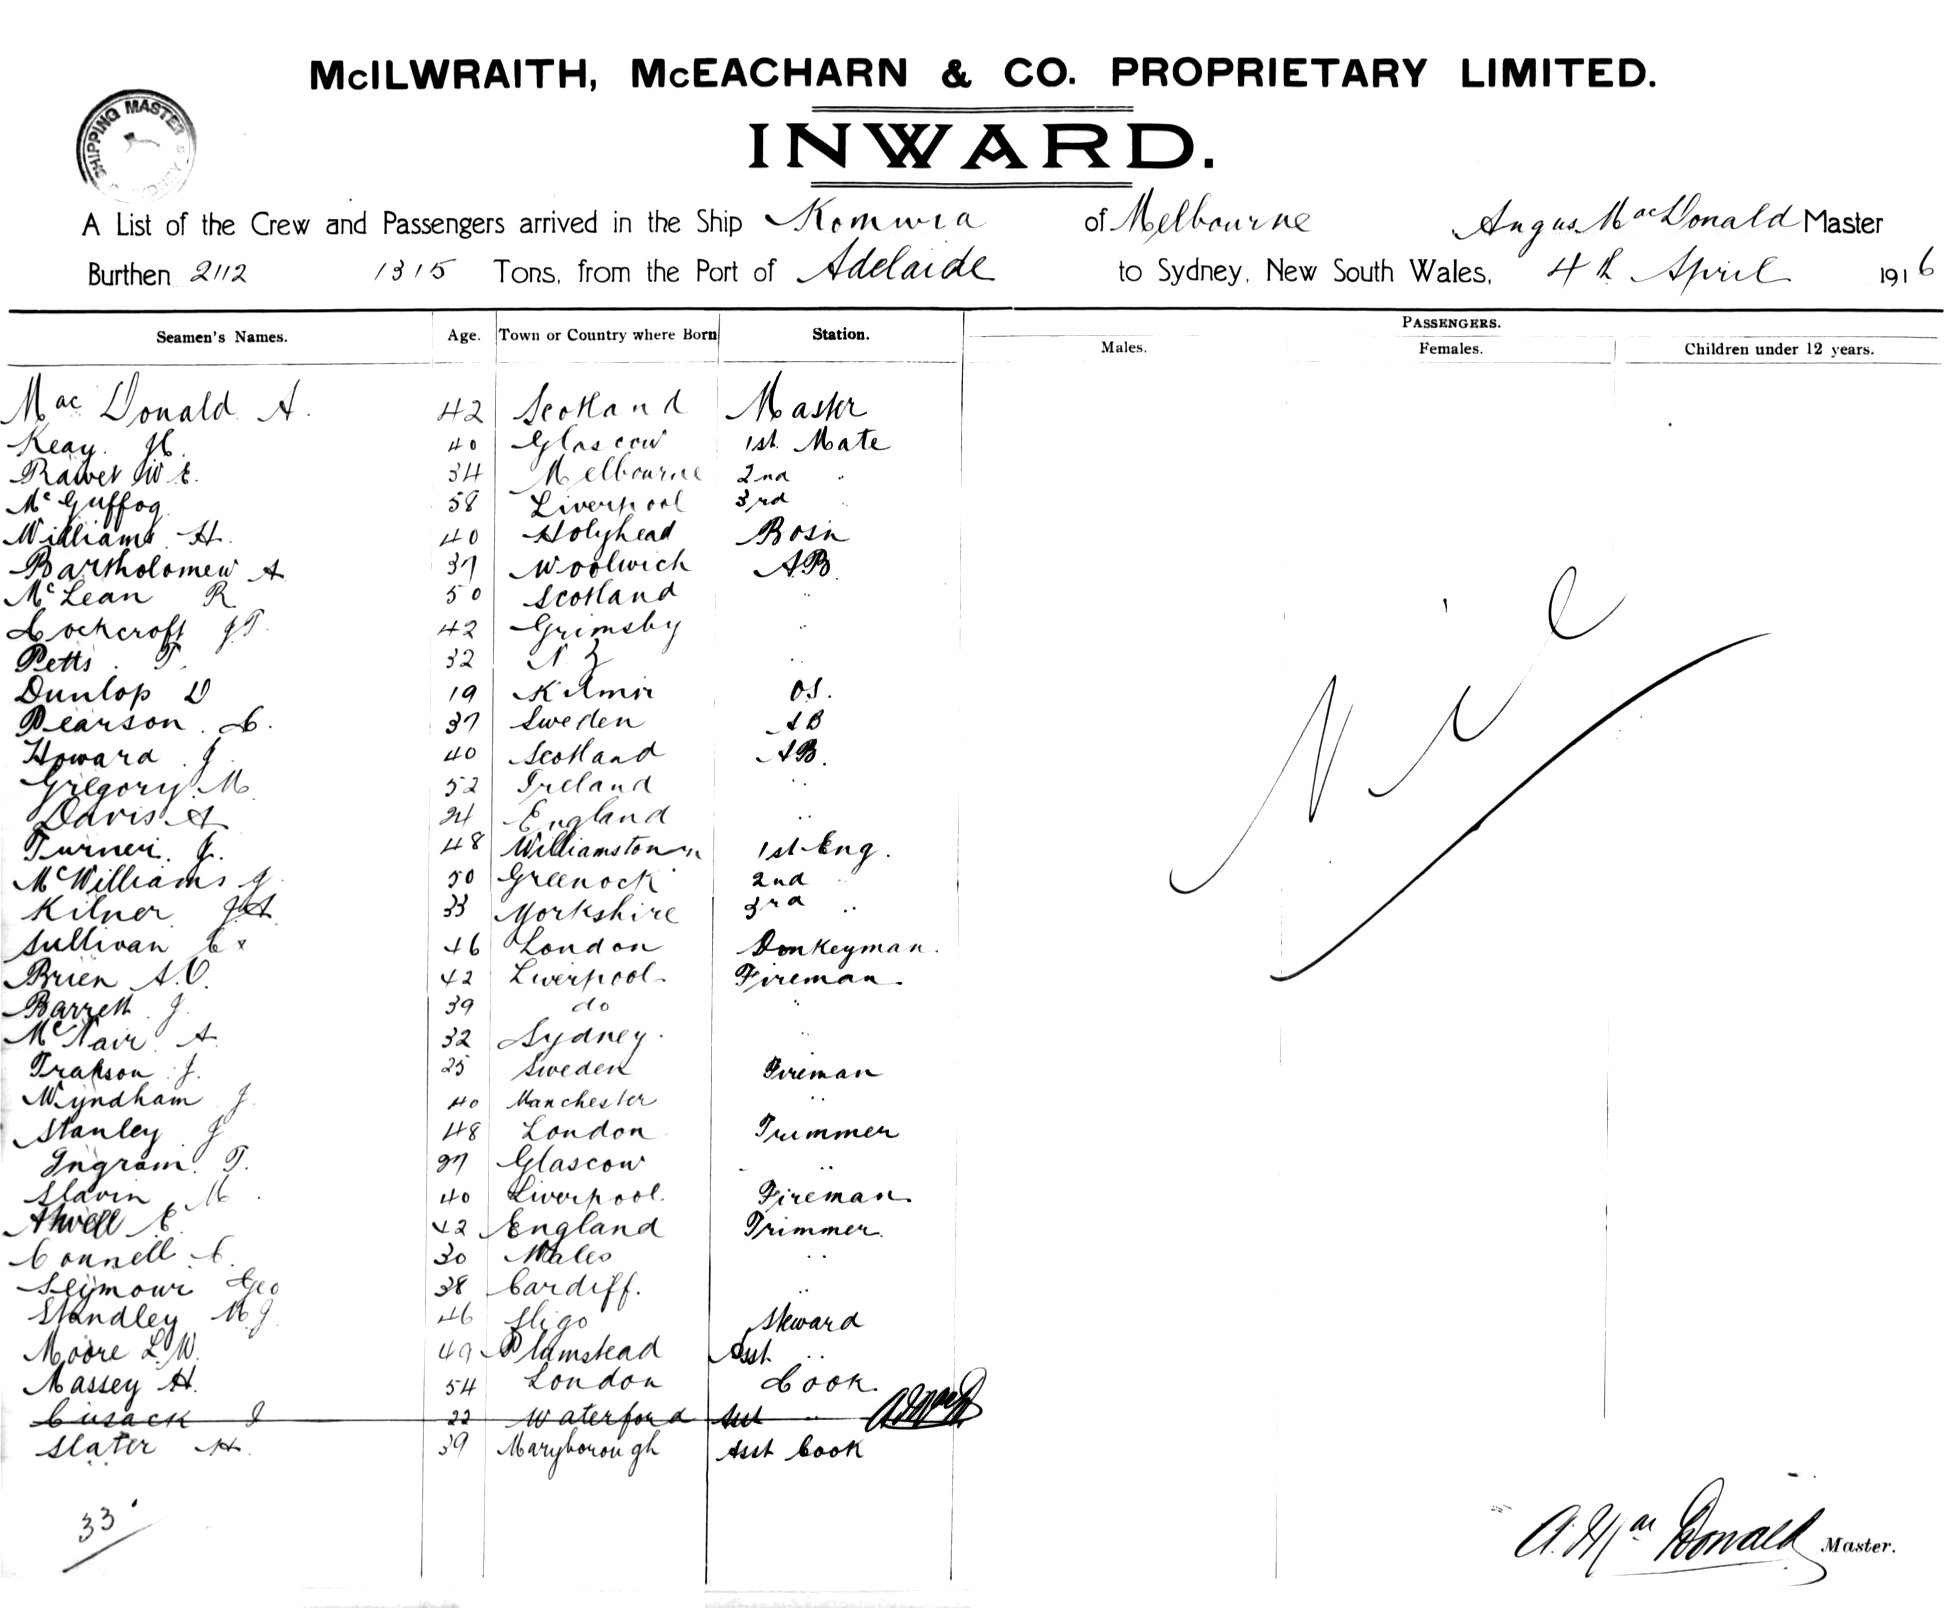 McILWRAITH, McEACHARN & CO. PROPRIETARY LIMITED.
SHIPPING MASTER
INWARD.
A List of the Crew and Passengers arrived in the Ship Komura of Melbourne Angus MacDonald Master
Burthen 2112 1315 Tons, from the Port of Adelaide to Sydney, New South Wales, 4th April 1916
Seamen's Names. Age. Town or Country where Born Station. PASSENGERS.
Males. Females. Children under 12 years.
MacDonald A. 42 Scotland Master
Keay. H. 40 Glascow 1st. Mate
W E. 34 Melbourne 2nd "
McGuffog 58 Liverpool 3rd "
Williams H. 40 Holyhead Bosn
Bartholomew A 37 Woolwich AB.
McLean R 50 Scotland "
Cockcroft J T. 42 Grimsby "
Petts. T. 32 N Z "
Dunlop D 19 O.S.
Pearson. C. 37 Sweden AB
Howard. J 40 Scotland AB.
Gregory. M. 52 Ireland "
Davis A 24 England "
Turner. J. 48 Williamstown 1st Eng.
McWilliams J. 50 Greenock 2nd "
Kilner J A. 33 Yorkshire 3rd "
Sullivan C x 46 London Donkeyman.
Brien A.O. 42 Liverpool. Fireman.
Barrett. J. 39 do "
McNair. A. 32 Sydney. "
J. 25 Sweden Fireman
Wyndham J. 40 Manchester "
Stanley J 48 London Trimmer
Ingram. T. 27 Glascow "
Slavin M. 40 Liverpool. Fireman.
Atwell E. 42 England Trimmer.
Connell C. 30 Wales "
Seymour Geo 38 Cardiff. "
Standley M. J. 46 Sligo Steward
Moore L.W. 49 Plumstead Asst. "
Massey H. 54 London Cook.
Cusack J 22 Waterford Asst "
Slater H. 39 Maryborough Asst Cook
Nil
33
A. MacDonald Master.